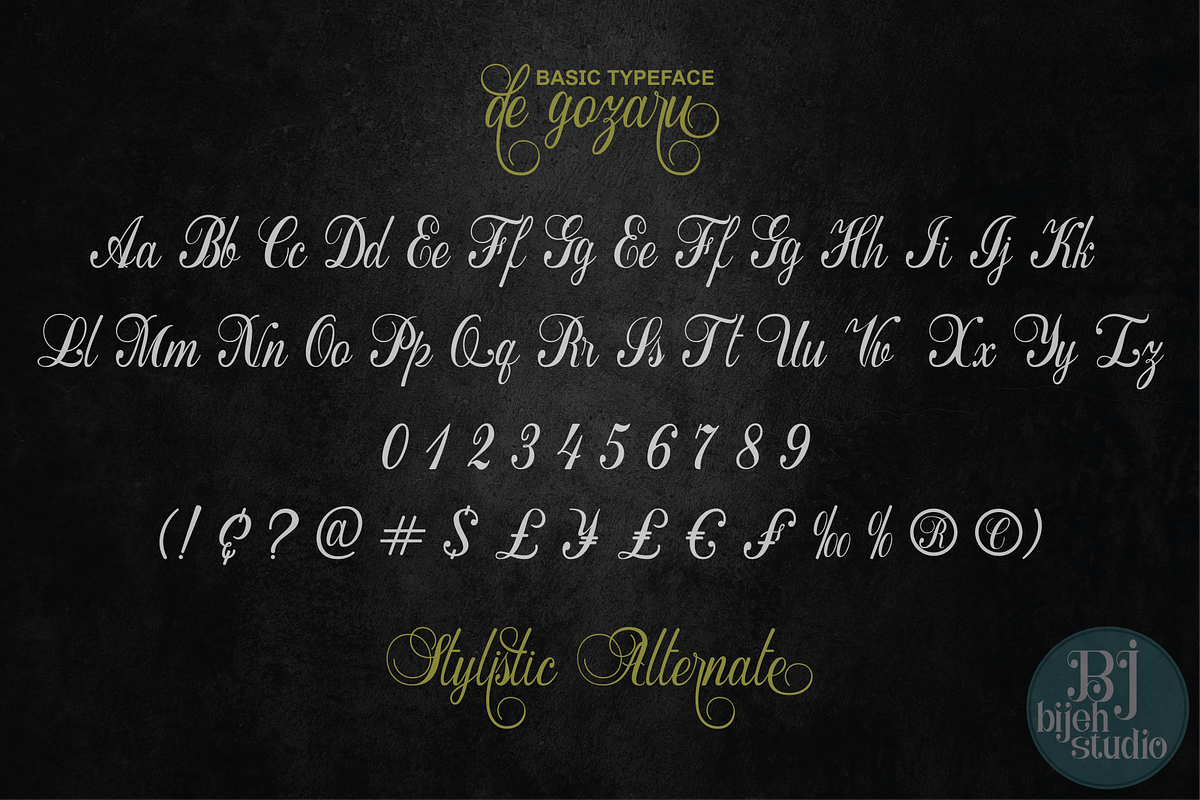 BASIC TYPEFACE
de gozaru
Aa Bb Cc Dd Ee Ff Gg Ee Ff Gg Hh Ii Jj Kk
Ll Mm Nn Oo Pp Qq Rr Ss Tt Uu Vv Xx Yy Zz
0 1 2 3 4 5 6 7 8 9
(! ¢ ? @ # $ £ ¥ ₤ € ₣ ‰ % ® ©)
Stylistic Alternate
BJ
bijeh
studio